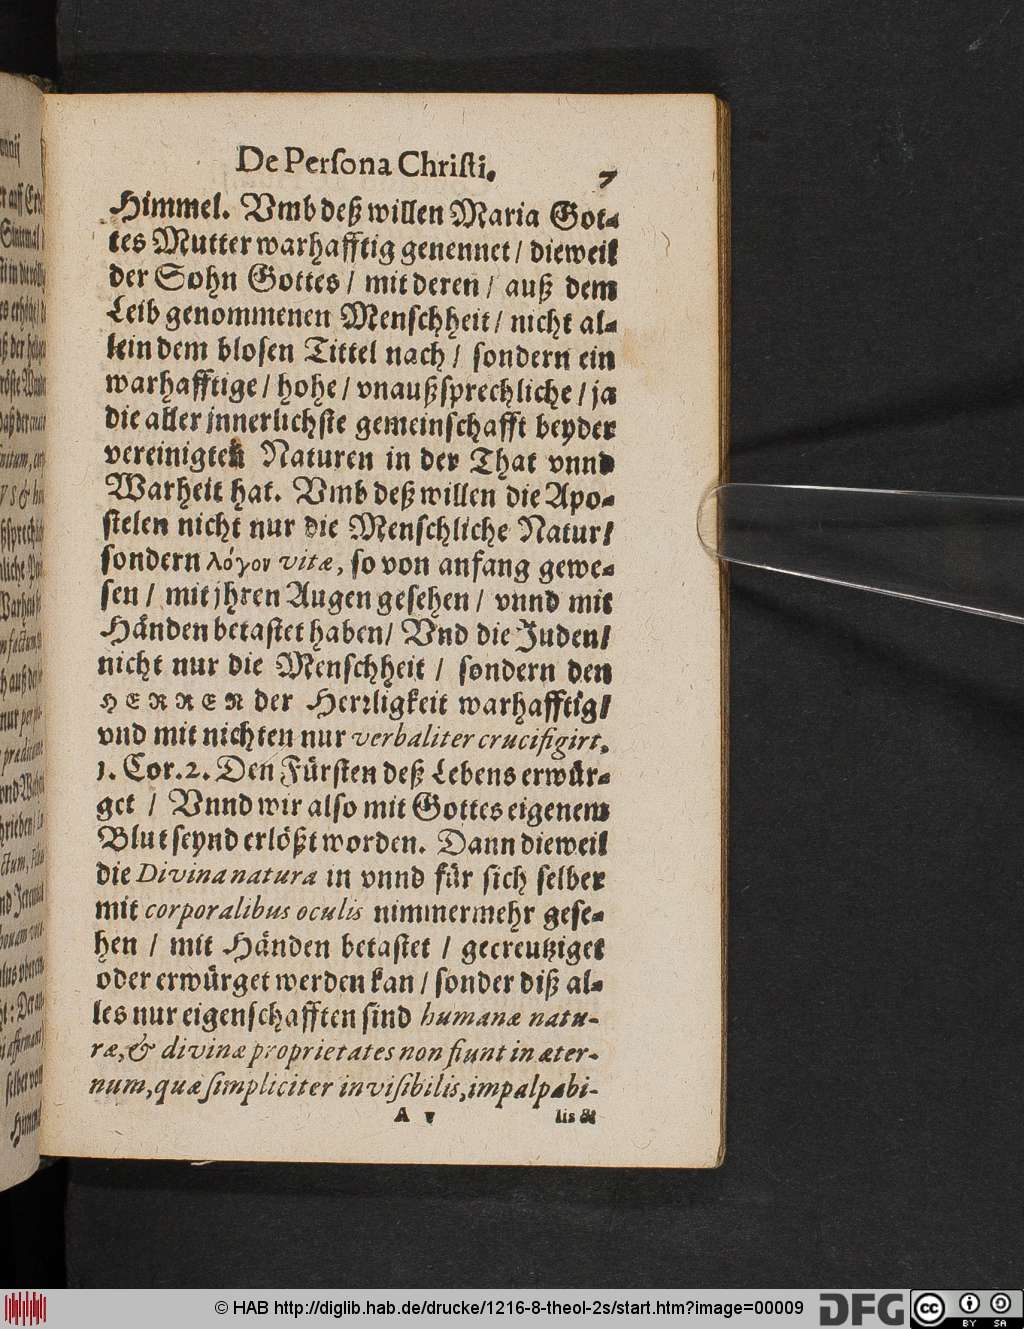 De Persona Christi. 7
Himmel. Vmb deß willen Maria Got-
tes Mutter warhafftig genennet / dieweil
der Sohn Gottes / mit deren / auß dem
Leib genommenen Menschheit / nicht al-
lein dem blosen Tittel nach / sondern ein
warhafftige / hohe / vnaußsprechliche / ja
die aller jnnerlichste gemeinschafft beyder
vereinigten Naturen in der That vnnd
Warheit hat. Vmb deß willen die Apo-
stelen nicht nur die Menschliche Natur /
sondern λόγον vitæ, so von anfang gewe-
sen / mit jhren Augen gesehen / vnnd mit
Händen betastet haben / Vnd die Juden /
nicht nur die Menschheit / sondern den
HERREN der Herrligkeit warhafftig /
vnd mit nichten nur verbaliter crucifigirt,
1. Cor. 2. Den Fürsten deß Lebens erwür-
get / Vnnd wir also mit Gottes eigenem
Blut seynd erlößt worden. Dann dieweil
die Divina natura in vnnd für sich selber
mit corporalibus oculis nimmermehr gese-
hen / mit Händen betastet / gecreutziget
oder erwürget werden kan / sonder diß al-
les nur eigenschafften sind humanæ natu-
ræ, & divinæ proprietates non fiunt in æter-
num, quæ simpliciter invisibilis, impalpabi-
A v lis &
© HAB http://diglib.hab.de/drucke/1216-8-theol-2s/start.htm?image=00009
DFG
cc
BY SA